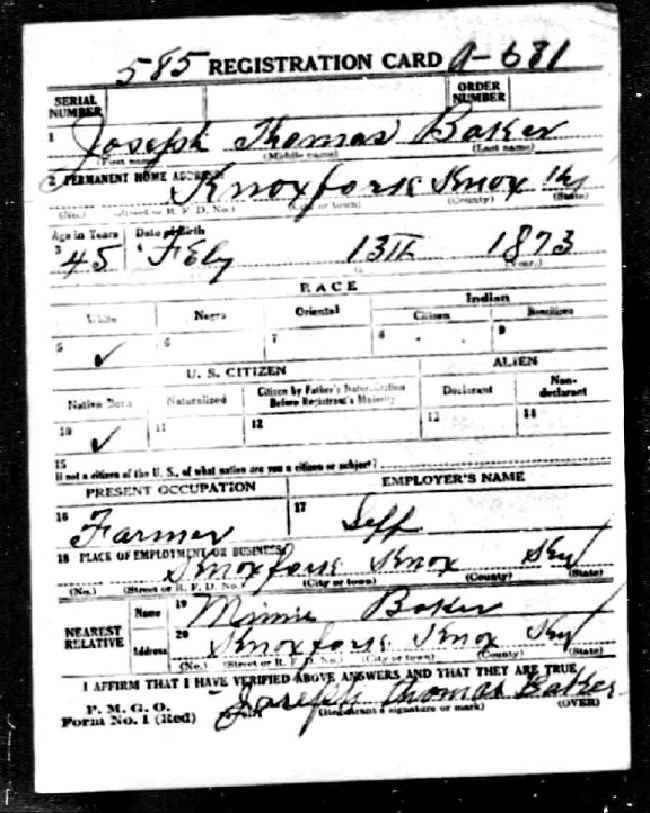 585 REGISTRATION CARD A-681
SERIAL NUMBER ORDER NUMBER
1 Joseph Thomas Baker
(First name) (Middle name) (Last name)
2 PERMANENT HOME ADDRESS Knoxfork Knox Ky
(No.) (Street or R. F. D. No.) (City or town) (County) (State)
Age in Years Date of Birth
3 45 4 Feby 13th 1873
(Year.)
RACE
White Negro Oriental Indian
Citizen Noncitizen
5 ✓ 6 7 8 9
U. S. CITIZEN ALIEN
Native Born Naturalized Citizen by Father's Naturalization Before Registrant's Majority Declarant Non-declarant
10 ✓ 11 12 13 14
15
If not a citizen of the U. S., of what nation are you a citizen or subject?
PRESENT OCCUPATION EMPLOYER'S NAME
16 Farmer 17 Self
18 PLACE OF EMPLOYMENT OR BUSINESS
Knoxfork Knox Ky
(No.) (Street or R. F. D. No.) (City or town) (County) (State)
NEAREST RELATIVE
Name 19 Minnie Baker
Address 20 Knoxfork Knox Ky
(No.) (Street or R. F. D. No.) (City or town) (County) (State)
I AFFIRM THAT I HAVE VERIFIED ABOVE ANSWERS AND THAT THEY ARE TRUE
P. M. G. O.
Form No. 1 (Red) Joseph Thomas Baker
(Registrant's signature or mark) (OVER)